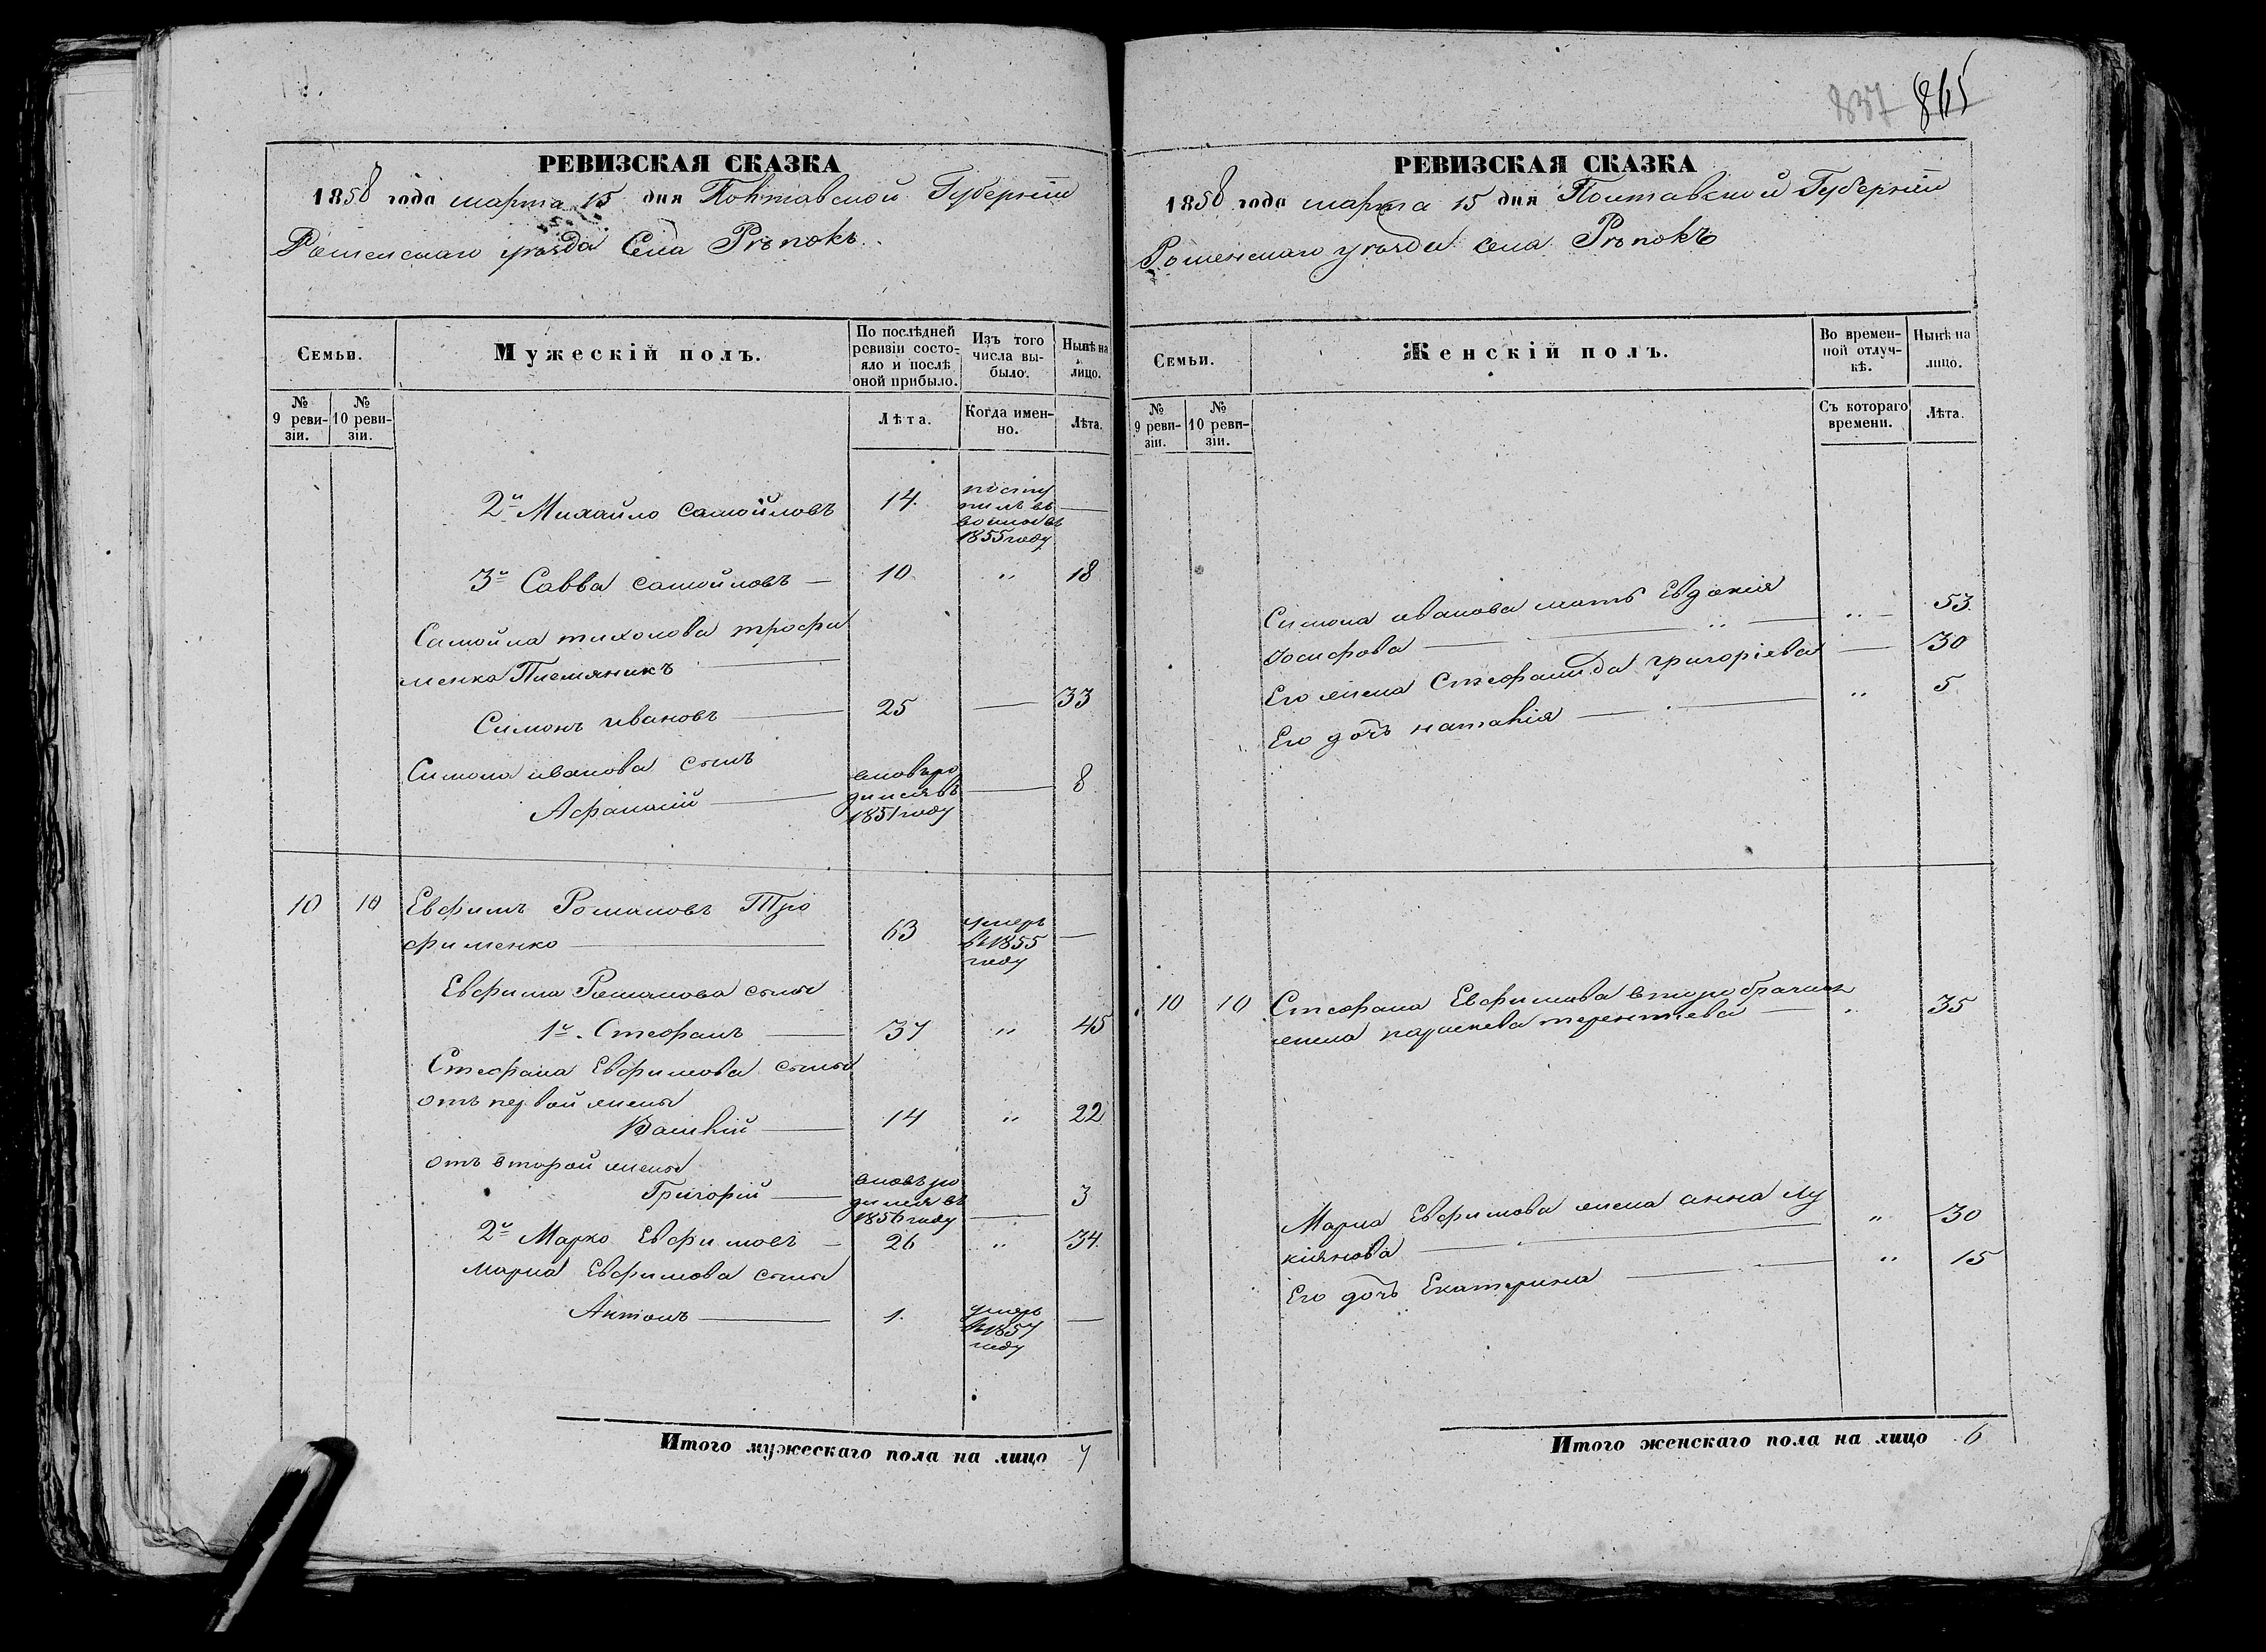 837 865
РЕВИЗСКАЯ СКАЗКА
1858 года марта 15 дня Полтавской Губерніи
Роменскаго уѣзда Села Рѣпокъ
Семьи.
Мужескій полъ.
По послѣдней ревизіи состояло и послѣ оной прибыло.
Изъ того числа выбыло.
Нынѣ на лицо.
№ 9 ревизіи.
№ 10 ревизіи.
Лѣта.
Когда именно.
Лѣта.
2й Михайло самойловъ 14 посту
пилъ въ
1855 году
3й Савва самойловъ — 10 " 18
Самойла тихонова трофи
менка Племяникъ —
Симонъ ивановъ — 25 — 33
Симона иванова сынъ
Афанасій — вновь ро
дился въ
1851 году — 8
10 10 Евфимъ Романовъ Тро
фименко — 63 умеръ
въ 1855
году —
Евфима Романова сыны
1й Стефанъ — 37 " 45
Стефана Евфимова сыны
отъ первой жены
Василій — 14 " 22
отъ второй жены
Григорій — вновь ро
дился въ
1856 году — 3
2й Марко Евфимовъ — 26 " 34
Марка Евфимова сыны
Антонъ — 1. умеръ
въ 1857
году —
Итого мужескаго пола на лицо 7
РЕВИЗСКАЯ СКАЗКА
1858 года марта 15 дня Полтавской Губерніи
Роменскаго уѣзда села Рѣпокъ
Семьи.
Женскій полъ.
Во временной отлучкѣ.
Нынѣ на лицо.
№ 9 ревизіи.
№ 10 ревизіи.
Съ котораго времени.
Лѣта.
Симона иванова мать Евдокія
Іосифова — " — 53
Его жена Стефанида григоріева — 30
Его дочь наталія — " 5
10 10 Стефана Евфимова второбрачная
жена параскева терентіева — " 35
Марка Евфимова жена анна лу
кіянова — " 30
Его дочь Екатерина — " 15
Итого женскаго пола на лицо 6